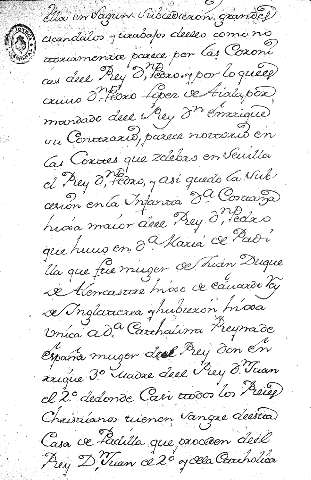 ella en Segura subcedieron grandes
escandalos y trabajos desto como no
toriamente parece por las Coroni
cas del Rey Dn. Pedro, y por lo que es
crivio Dn. Pedro Lopez de Aiala, por
mandado del Rey Dn. Enrrique
su Contrario, parece notorio en
las Cortes que zelebro en Sevilla
el Rey Dn. Pedro, y asi quedo la Sub
cesion en la Infanta Da. Costanza
hixa maior del Rey Dn. Pedro
que huvo en Da. Maria de Padi
lla que fue muger de Juan Duque
de Alencastre hixo de Eduardo Rey
de Inglaterra y hubieron hixa
unica a Da. Cathalina Reyna de
España muger del Rey don En
rrique 3o. Madre del Rey Dn. Juan
el 2o. de donde Casi todos los Reies
Christianos tienen Sangre desta
Casa de Padilla que proceden del
Rey Dn. Juan el 2o. y de la Catholica